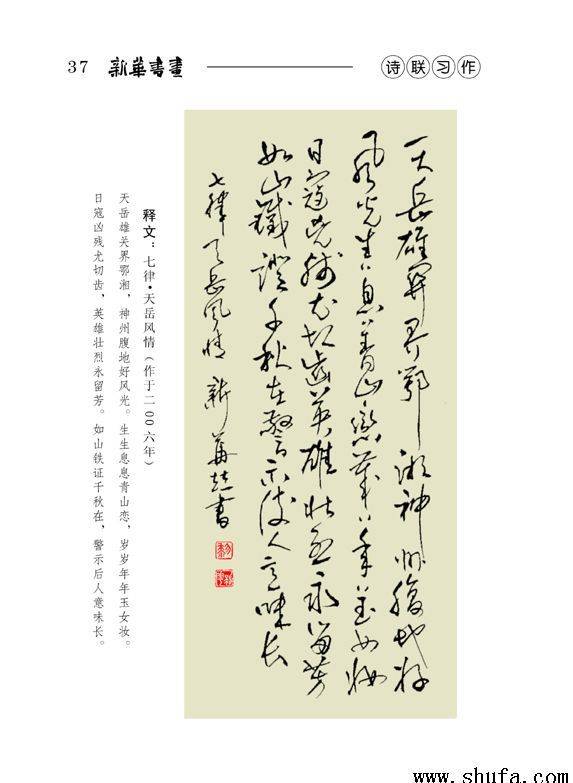 37 新華書畫
诗联习作
天岳雄関界鄂湘神州腹地好
風光生々息々青山恋歲々年々玉女妝
日寇凶残尤切齒英雄壮烈永留芳
如山鐵證千秋在警示後人意味长
七律天岳風情 新華書
释文：七律·天岳风情（作于二〇〇六年）
天岳雄关界鄂湘，神州腹地好风光。生生息息青山恋，岁岁年年玉女妆。
日寇凶残尤切齿，英雄壮烈永留芳。如山铁证千秋在，警示后人意味长。
www.shufa.com